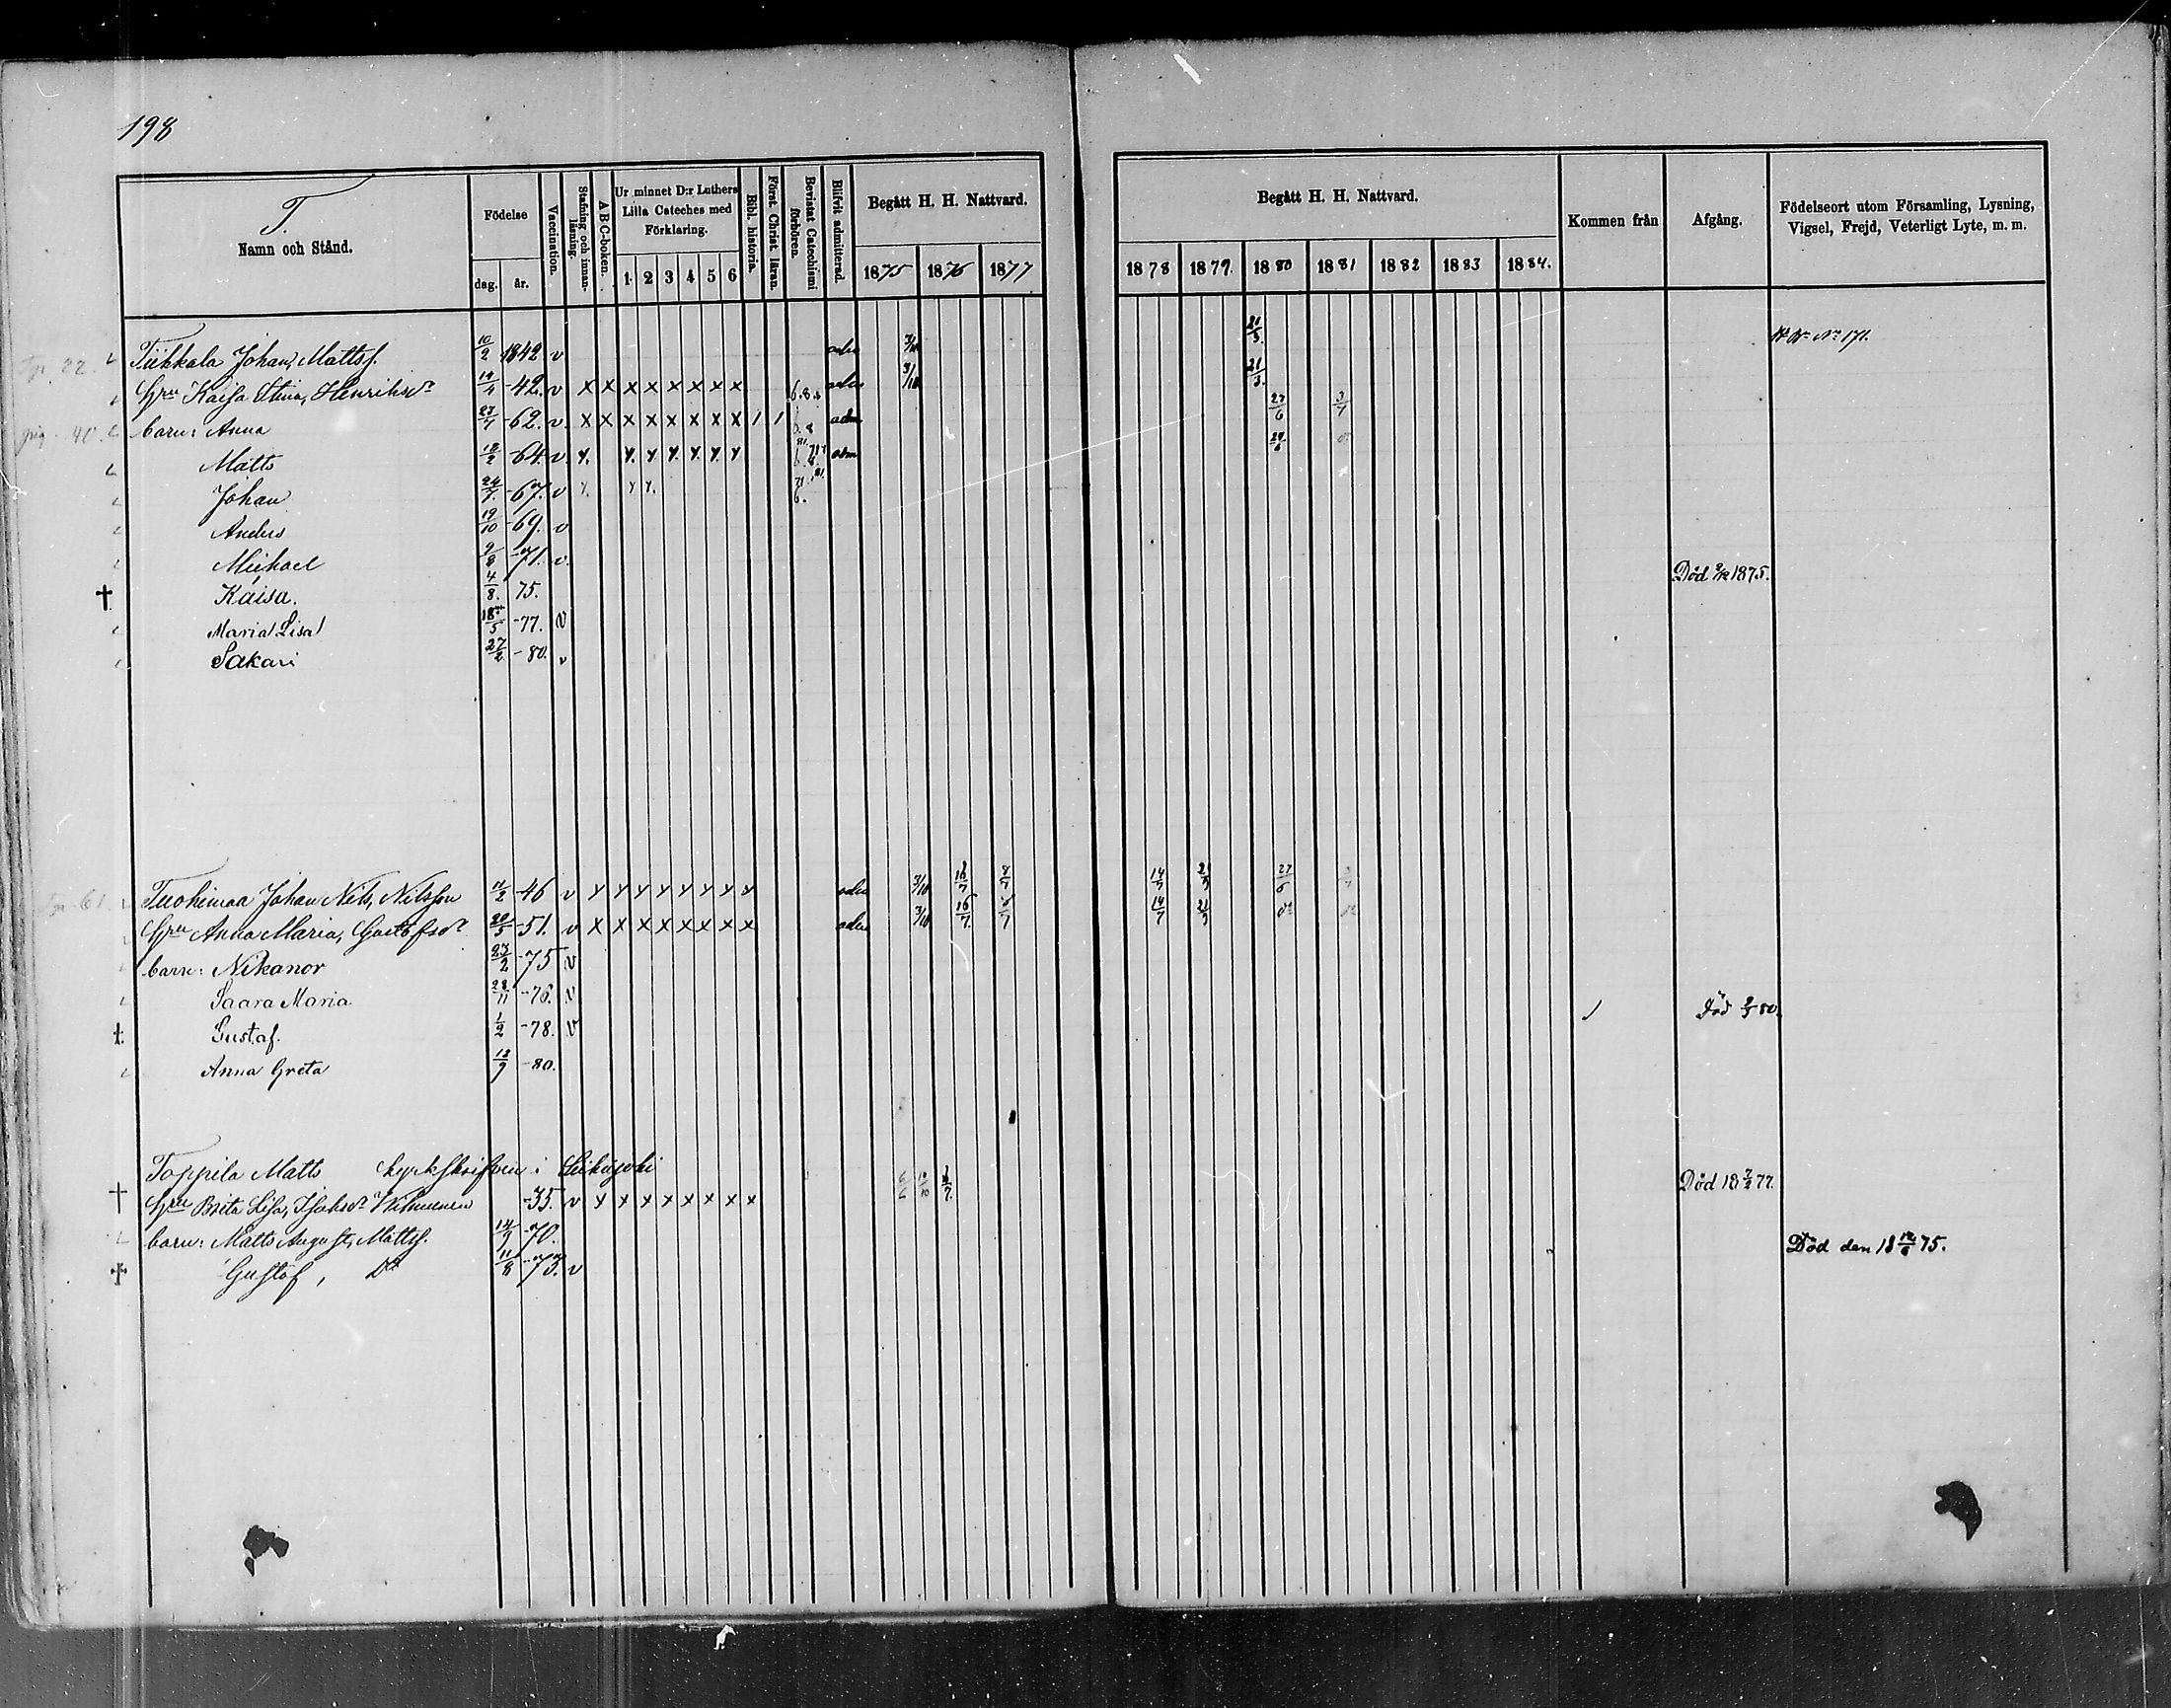 198
T.
Namn och Stånd.
Födelse
dag. år.
Vaccination.
Stafning och innanläsning.
A B C-boken.
Ur minnet D:r Luthers Lilla Cateches med Förklaring.
1 2 3 4 5 6
Bibl. historia.
Först. Christ. läran.
Bevistat Catechismi förhören.
Blifvit admitterad.
Begått H. H. Nattvard.
1875 1876 1877
Begått H. H. Nattvard.
1878 1879. 1880 1881 1882 1883 1884.
Kommen från
Afgång.
Födelseort utom Församling, Lysning, Vigsel, Frejd, Veterligt Lyte, m. m.
Tiikkala Johan, Mattsf. 10/2 1842 v adm 3/10 21/3. No 171.
Hru Kaisa Stina, Henriksdr 19/4 -42. v x x x x x x x x 6.8. adm 3/10 21/3.
barn: Anna 27/7 -62. v. x x x x x x x x 1 1 adm 27/6 3/7
Matts 18/2 -64. v. x. x. x x. x. x. x adm 27/6
Johan 24/7. -67. v x. x x.
Anders 19/10 -69. v
Michael 9/8 -71. v.
† Kaisa. 4/8. 75. Död 9/12 1875.
Maria Lisa 18/5 -77. v
Sakari 27/2 -80. v
Tuohimaa Johan Nils, Nilsson 11/2 -46 v x x x x x x x x adm 3/10 16/7 8/7 14/7 21/3 27/6
Hru Anna Maria, Gustofsdr 20/5 -51. v x x x x x x x x adm 3/10 16/7. 8/7 14/7 21/3 do do
barn: Nikanor 27/2 -75 v
Saara Maria 28/11 -76. v
† Gustaf. 1/2 -78. v Död 2/5 80.
Anna Greta 12/9 -80.
Toppila Matts kyrkskrifven i Siikajoki
† Hru Brita Lisa, Isaksdr -35. v x x x x x x x x Död 18 7/2 77.
barn: Matts August, Mattsf. 14/9 -70.
† Gustaf, Do 11/8 -73. v Död den 18 12/6 75.